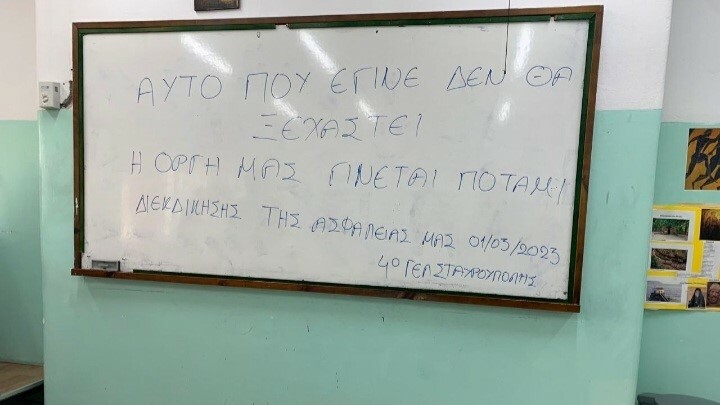 ΑΥΤΟ ΠΟΥ ΕΓΙΝΕ ΔΕΝ ΘΑ
ΞΕΧΑΣΤΕΙ
Η ΟΡΓΗ ΜΑΣ ΓΙΝΕΤΑΙ ΠΟΤΑΜΙ
ΔΙΕΚΔΙΚΗΣΗΣ ΤΗΣ ΑΣΦΑΛΕΙΑΣ ΜΑΣ 01/03/2023
4ο ΓΕΛ ΣΤΑΥΡΟΥΠΟΛΗΣ